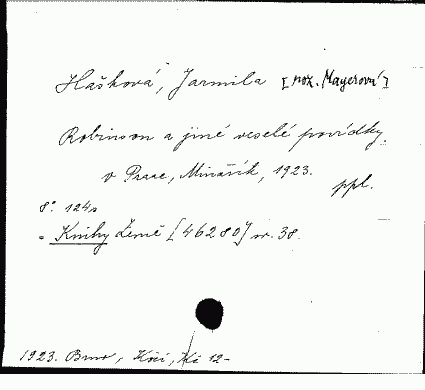 Hašková, Jarmila [roz. Mayerová]
Robinson a jiné veselé povídky.
v Praze, Minařík, 1923.
ppl.
8°. 124 s
= Knihy Země [46280] sv. 38.
1923. Brno, Kočí, Kč 12-